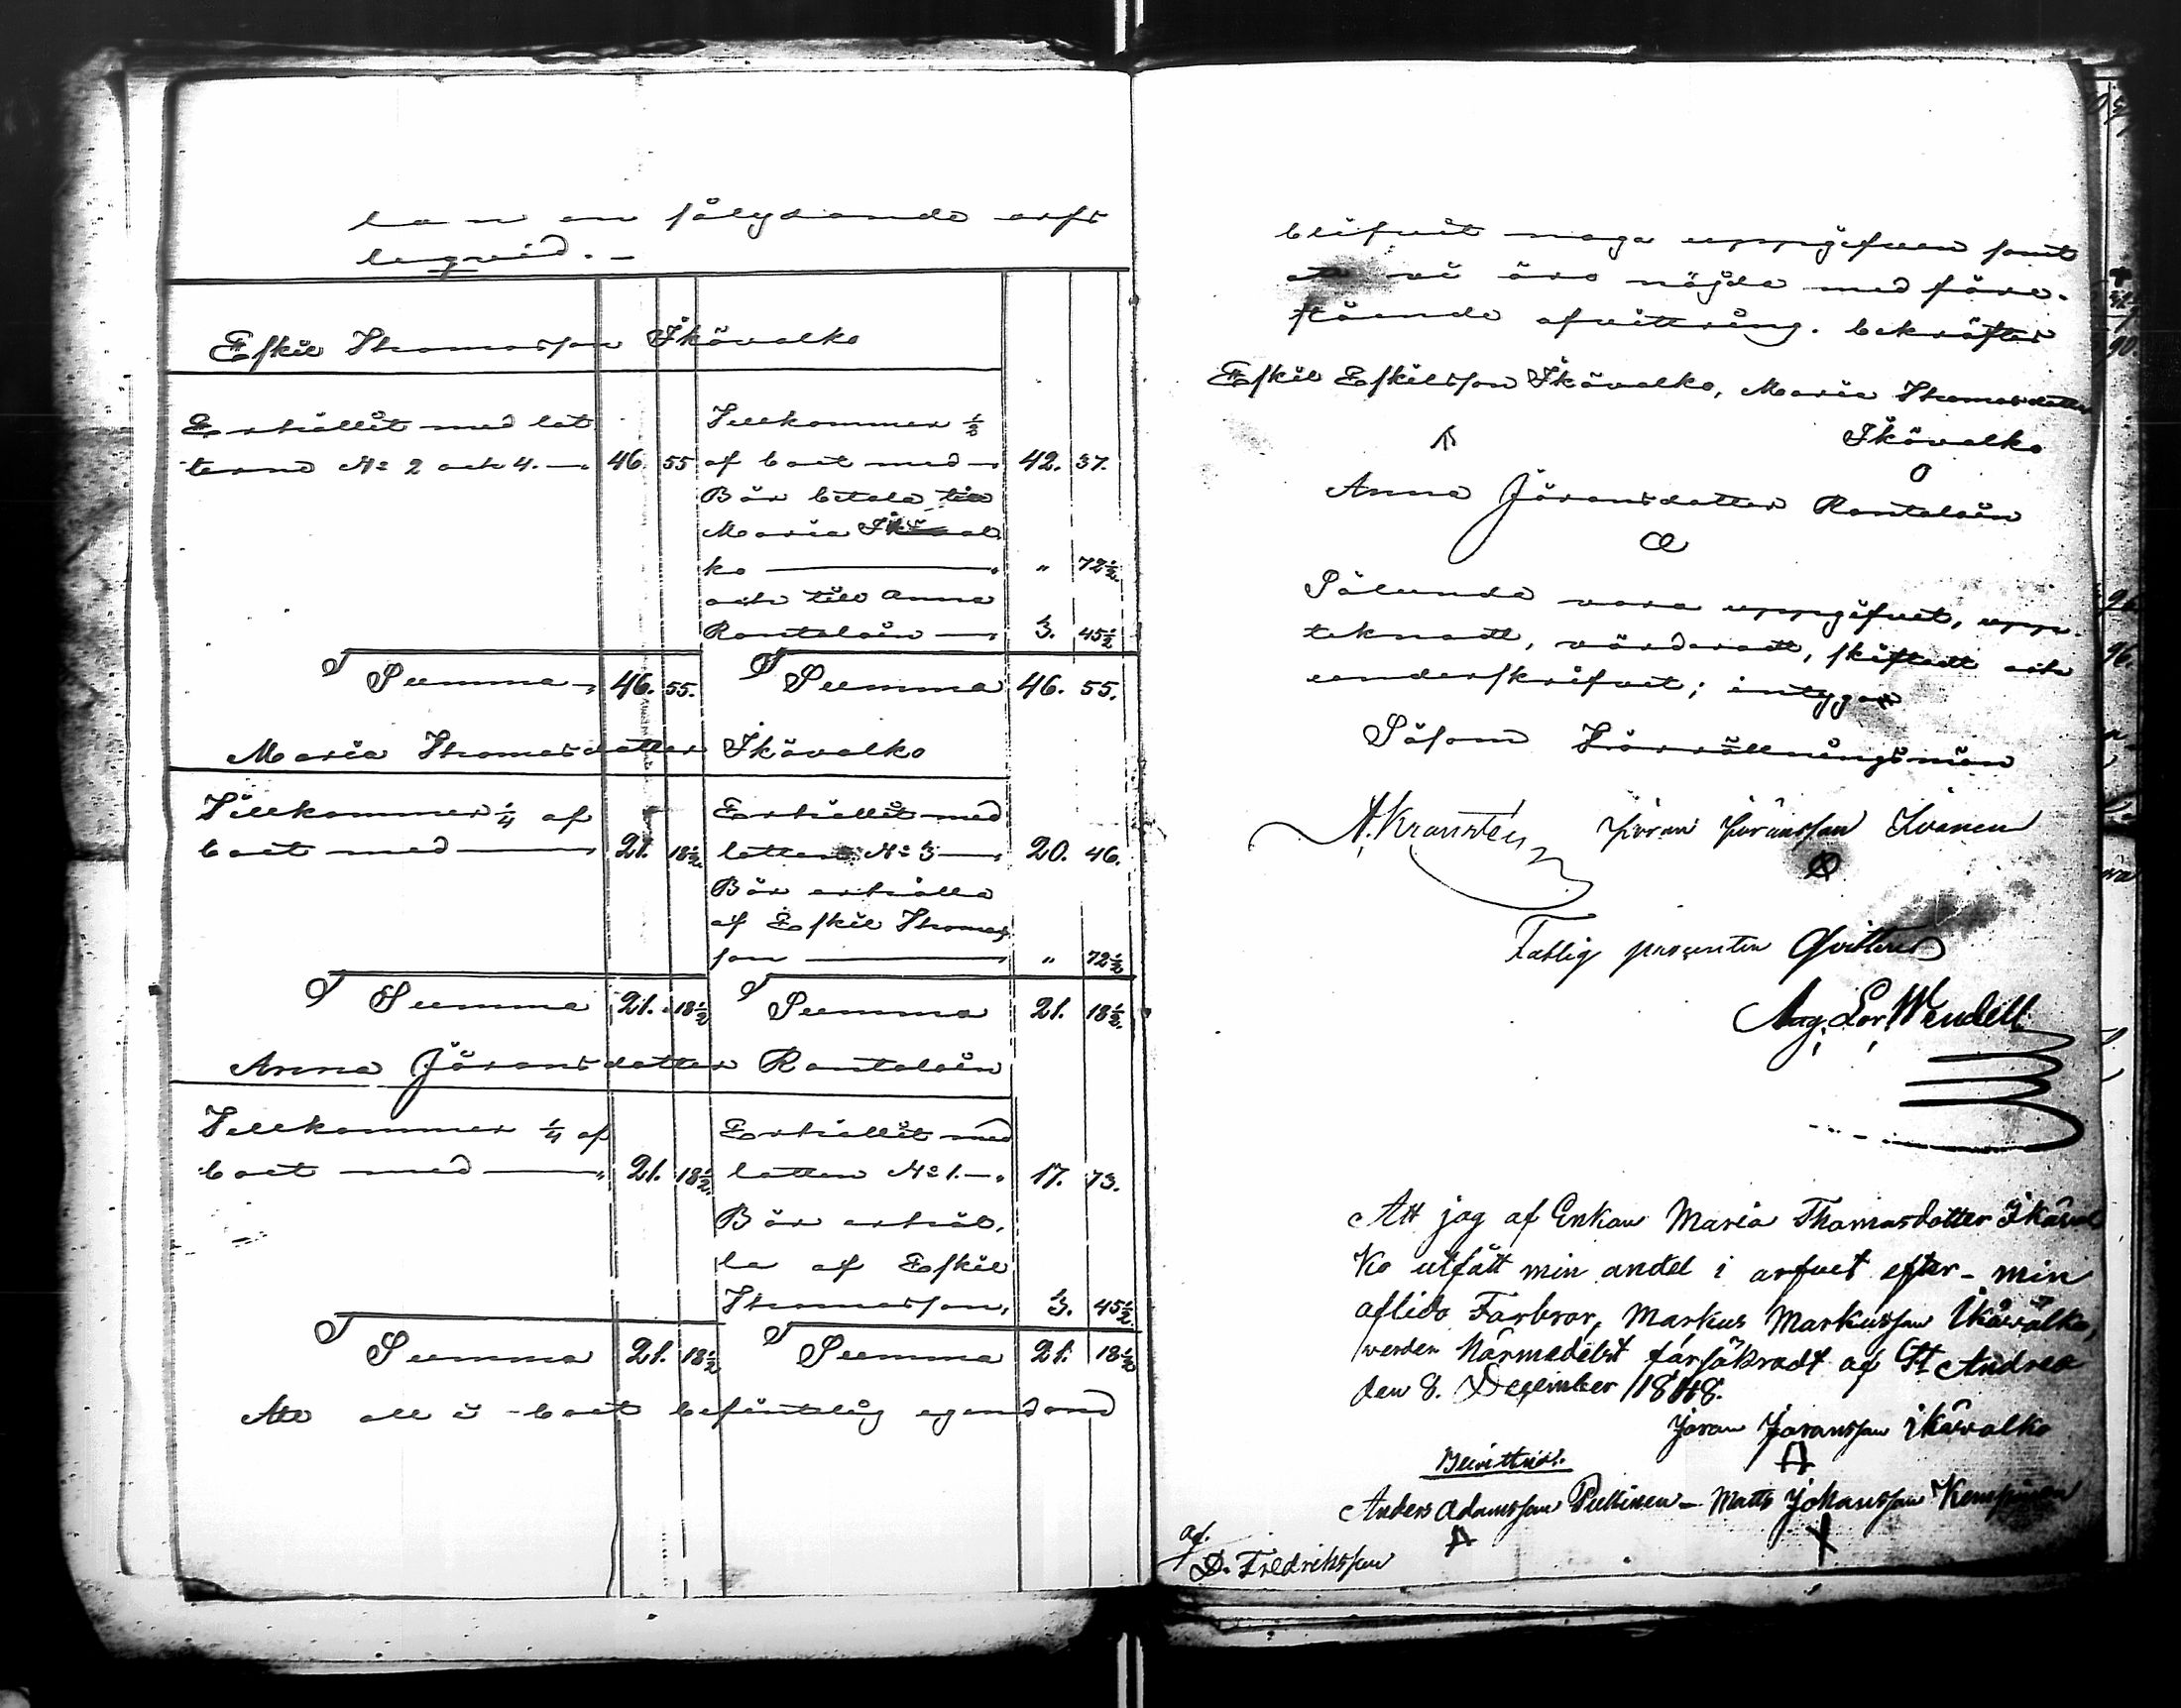 lan en följdande arfs
leqvid. –
Eskil Thomasson Ikävalko
Erhållit med lot
terne N:o 2 och 4. — 46. 55
Tillkommer 1/2
af boet med — 42. 37.
Bör betala till
Maria Ikäval
ko — " 72 1/2.
och till Anna
Rantalain — 3. 45 1/2
Summa — 46. 55.
Summa 46. 55.
Maria Thomasdotter Ikävalko
Tillkommer 1/4 af
boet med — 21. 18 1/2.
Erhållit med
lotten N:o 3 — 20. 46.
Bör erhålla
af Eskil Thomas
son — " 72 1/2
Summa 21. 18 1/2
Summa 21. 18 1/2.
Anna Jöransdotter Rantalain
Tillkommer 1/4 af
boet med — 21. 18 1/2.
Erhållit med
lotten N:o 1. — 17. 73.
Bör erhål-
la af Eskil
Thomasson, 3. 45 1/2
Summa 21. 18 1/2
Summa 21. 18 1/2
Att all i boet befintlig egendom
blifvit noga uppgifven samt
att vi äro nöjda med före-
stående afvittring. bekräftas
Eskil Eskilsson Ikävalko, Maria Thomasdotter
Ikävalko
Anna Jöransdotter Rantalain
Sålunda vara uppgifvet, upp-
teknadt, värderadt, skiftadt och
underskrifvet; intygar
Såsom Förrättningsmän
A. Kransten Jöran Jöransson
Fattig procenten Qvitteras
Aug. Lor. Wendell
Att jag af Enkan Maria Thomasdotter Ikäval
ko utfått min andel i arfvet efter min
aflidn Farbror, Markus Markusson Ikävalko,
warder härmedelst försäkradt af St Andrea
den 8. December 1848.
Jöran Jöransson Ikävalko
A
Bevittnas.
Anders Adamsson Pullinen – Matts Johansson Kemppinen
A X
af.
D. Fredriksson